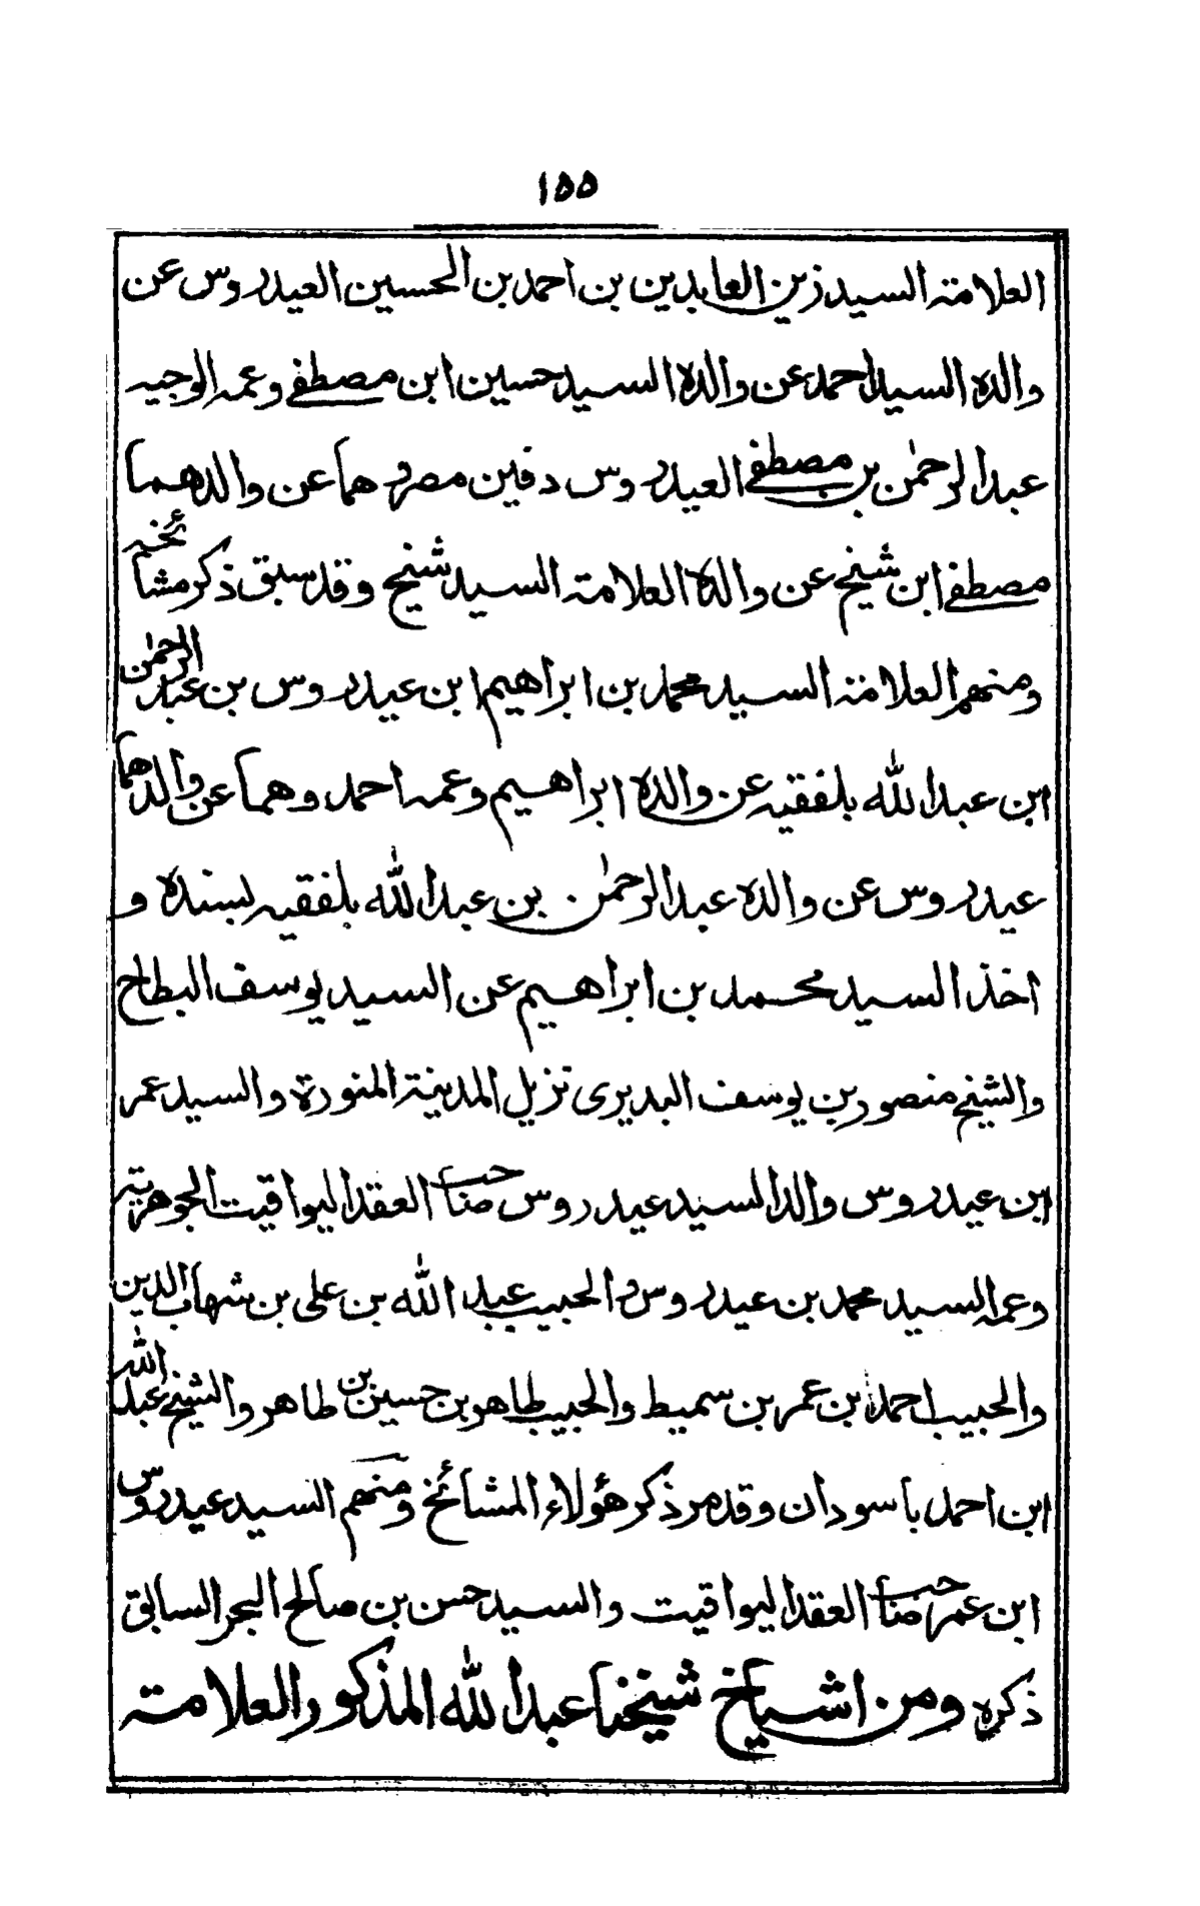 ١٥٥
العلامة السيد زين العابدين بن احمد بن الحسين العيدروس عن
والده السيد احمد عن والده السيد حسين ابن مصطفے وعمه الوجيه
عبد الرحمٰن بن مصطفے العيدروس دفين مصر وهما عن والدهما
مصطفے ابن شيخ عن والده العلامة السيد شيخ وقد سبق ذكر مشائخه
ومنهم العلامة السيد محمد بن ابراهيم ابن عيدروس بن عبد الرحمٰن
ابن عبد الله بلفقيه عن والده ابراهيم وعمه احمد وهما عن والدهما
عيدروس عن والده عبد الرحمٰن بن عبد الله بلفقيه بسنده و
اخذ السيد محمد بن ابراهيم عن السيد يوسف البطاح
والشيخ منصور بن يوسف البديرى نزيل المدينة المنورة والسيد عمر
ابن عيدروس والد السيد عيدروس صاحب العقد اليواقيت الجوهرية
وعمه السيد محمد بن عيدروس والحبيب عبد الله بن على بن شهاب الدين
والحبيب احمد بن عمر بن سميط والحبيب طاهر بن حسين بن طاهر والشيخ عبد الله
ابن احمد باسودان وقد مر ذكر هؤلاء المشائخ ومنهم السيد عيدروس
ابن عمر صاحب العقد اليواقيت والسيد حسن بن صالح البحر السابق
ذكره ومن اشياخ شيخنا عبد الله المذكور العلامة